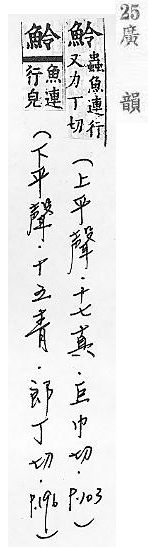 25廣韻
魿
蟲魚連行
又力丁切
(上平聲.十七真.巨巾切.P.103)
魿
魚連
行皃
(下平聲.十五青.郎丁切.P.196)